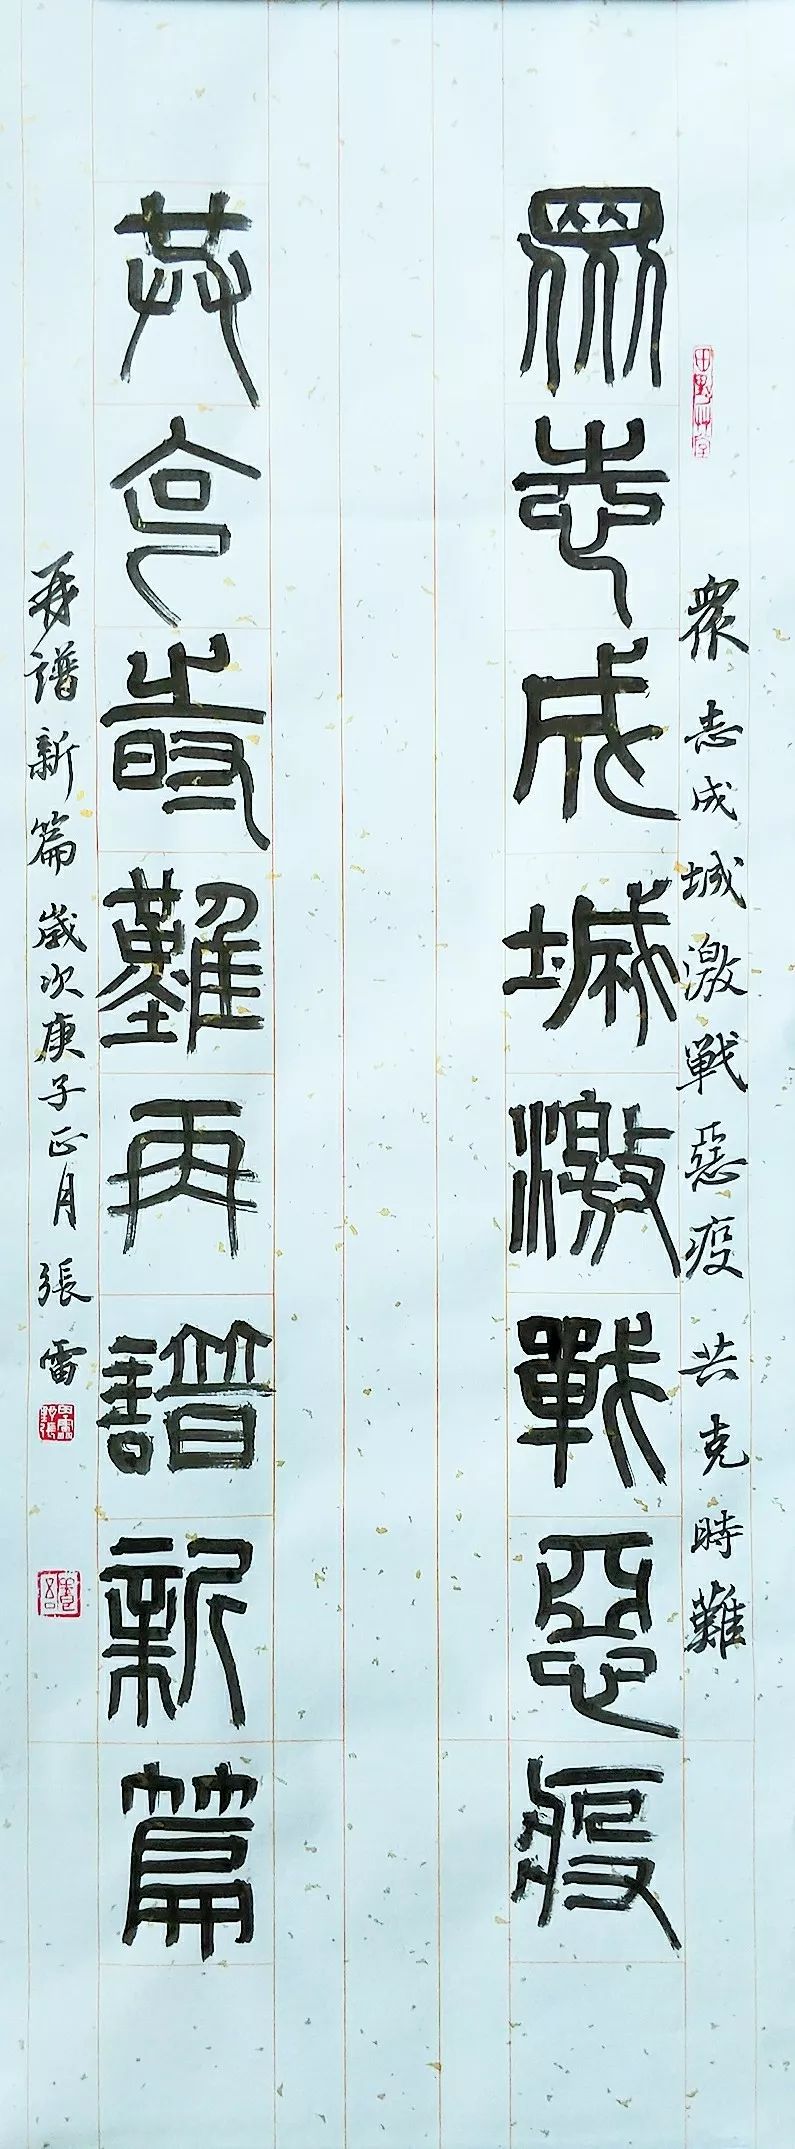 眾志成城激戰惡疫
共克時難再譜新篇
眾志成城激戰惡疫共克時難
再譜新篇歲次庚子正月張雷
田野草堂